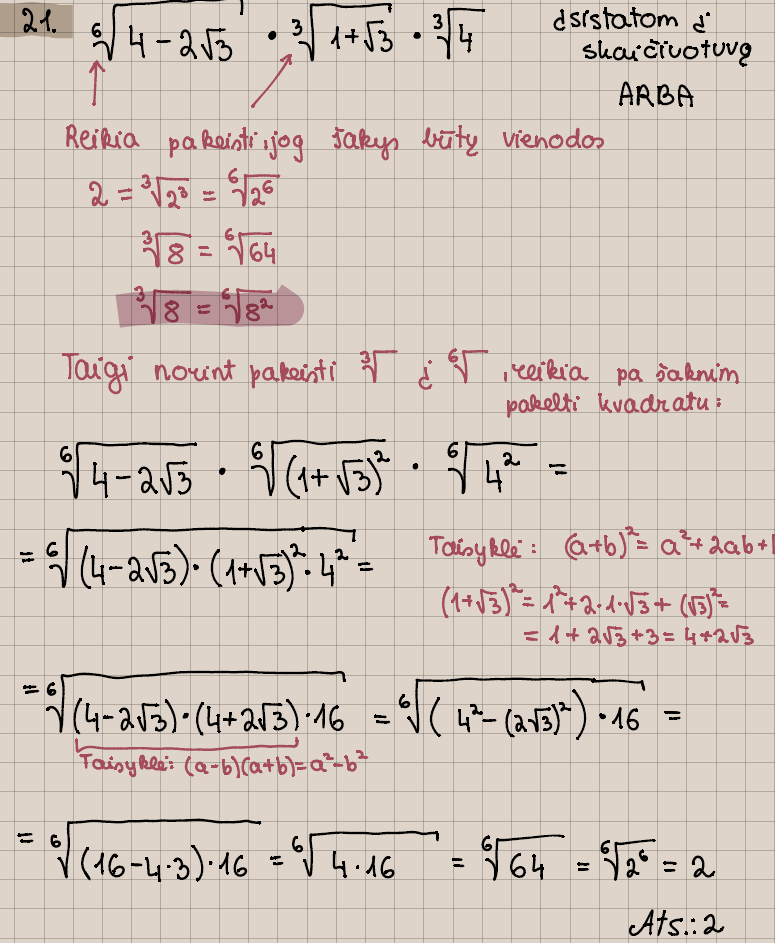 21. ⁶√(4-2√3) · ³√(1+√3) · ³√4 įsistatom į
skaičiuotuvą
ARBA
Reikia pakeisti, jog šakys būtų vienodos
2 = ³√2³ = ⁶√2⁶
³√8 = ⁶√64
³√8 = ⁶√8²
Taigi norint pakeisti ³√ į ⁶√, reikia pa šaknim
pakelti kvadratu:
⁶√(4-2√3) · ⁶√(1+√3)² · ⁶√4² =
= ⁶√((4-2√3)·(1+√3)²·4²) =
Taisyklė: (a+b)² = a²+2ab+
(1+√3)² = 1²+2·1·√3+(√3)² =
= 1+2√3+3 = 4+2√3
= ⁶√((4-2√3)·(4+2√3)·16) = ⁶√((4²-(2√3)²)·16) =
Taisyklė: (a-b)(a+b)=a²-b²
= ⁶√((16-4·3)·16) = ⁶√(4·16) = ⁶√64 = ⁶√2⁶ = 2
Ats.: 2